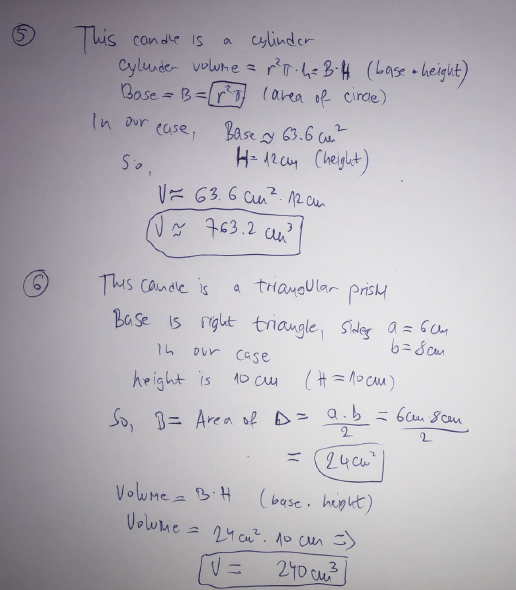 ⑤ This candle is a cylinder
Cylinder volume = r²π·h = B·H (base · height)
Base = B = r²π (area of circle)
In our case, Base ≈ 63.6 cm²
H = 12 cm (height)
So,
V ≈ 63.6 cm² · 12 cm
V ≈ 763.2 cm³
⑥ This candle is a triangular prism
Base is right triangle, sides a = 6 cm
b = 8 cm
In our case
height is 10 cm (H = 10 cm)
So, B = Area of △ = a·b/2 = 6cm·8cm/2
= 24 cm²
Volume = B·H (base · height)
Volume = 24 cm² · 10 cm =>
V = 240 cm³